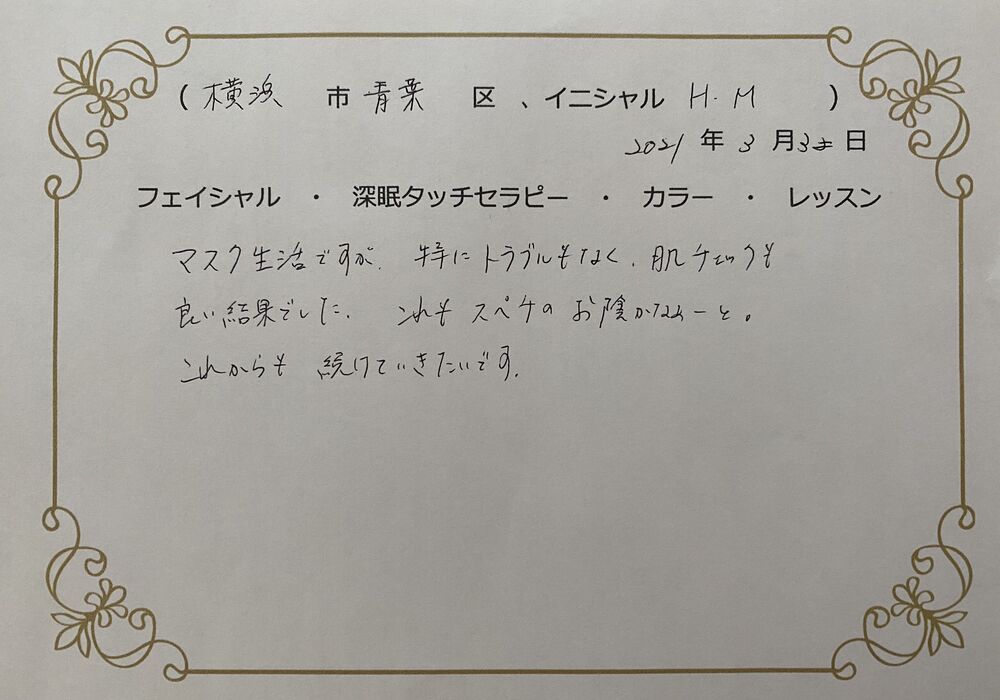 （横浜 市 青葉 区 、イニシャル H.M ）
2021 年 3 月 日
フェイシャル ・ 深眠タッチセラピー ・ カラー ・ レッスン
マスク生活ですが、特にトラブルもなく、肌チェックも
良い結果でした。これもスペチのお陰かなぁーと。
これからも 続けていきたいです。